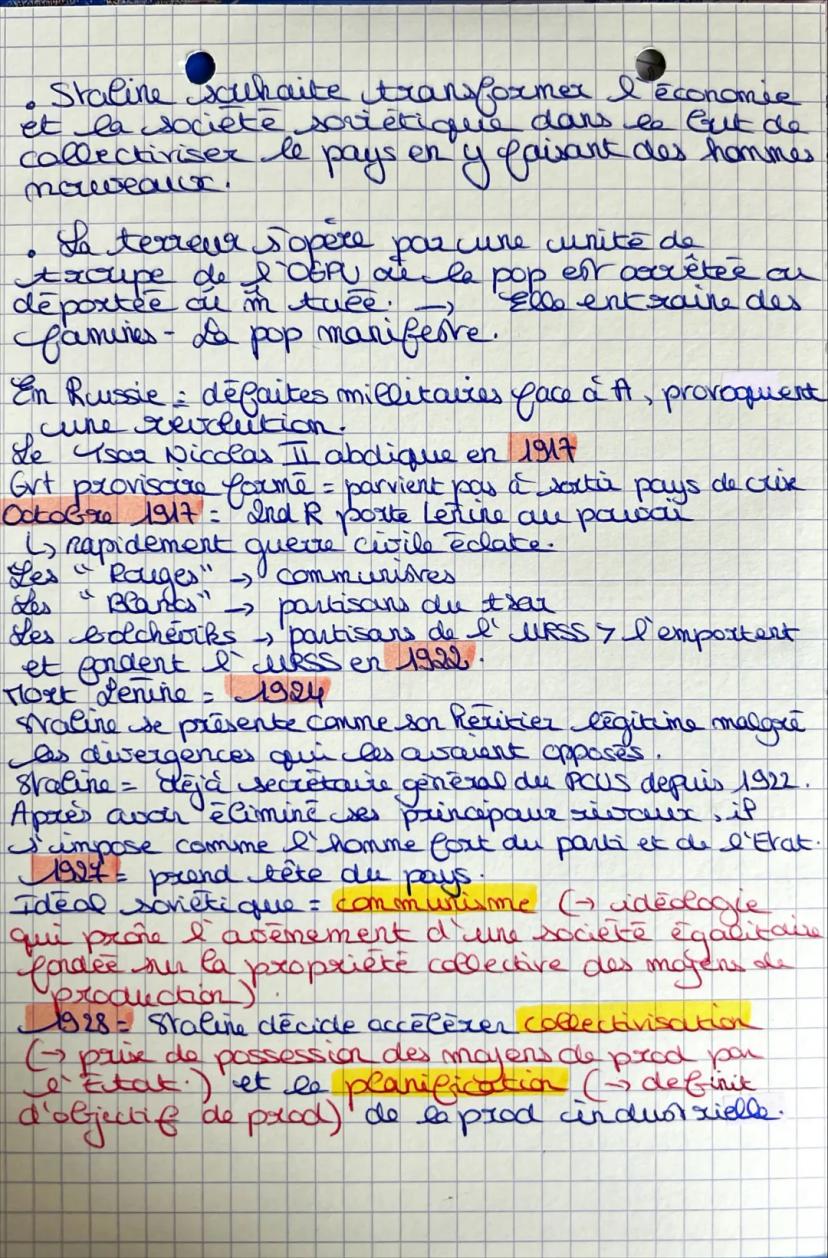 . Staline souhaite transformer l'économie
et la société soviétique dans le but de
collectiviser le pays en y faisant des hommes
nouveaux.
. La terreur s'opère par une unité de
troupe de l'OGPU où la pop est arrêtée ou
déportée ou m̂ tuée. → Elle entraine des
famines - La pop manifeste.
En Russie = défaites millitaires face à A, provoquent
une révolution.
Le Tsar Nicolas II abdique en 1917
Gvt provisoire formé = parvient pas à sortir pays de crise
Octobre 1917 = 2nd R porte Lénine au pouvoir
↳ rapidement guerre civile éclate.
Les "Rouges" → communistes
Les "Blancs" → partisans du tsar
Les bolchéviks → partisans de l'URSS > l'emportent
et fondent l'URSS en 1922.
Mort Lénine = 1924
Staline se présente comme son héritier légitime malgré
les divergences qui les avaient opposés.
Staline = déjà secrétaire général du PCUS depuis 1922.
Après avoir éliminé ses principaux rivaux, il
s'impose comme l'homme fort du parti et de l'Etat.
1927 = prend tête du pays.
Idéal soviétique = communisme (→ idéologie
qui prône l'avènement d'une société égalitaire
fondée sur la propriété collective des moyens de
production).
1928 = Staline décide accélérer collectivisation
(→ prise de possession des moyens de prod par
l'Etat.) et la planification (→ définit
d'objectif de prod) de la prod industrielle.